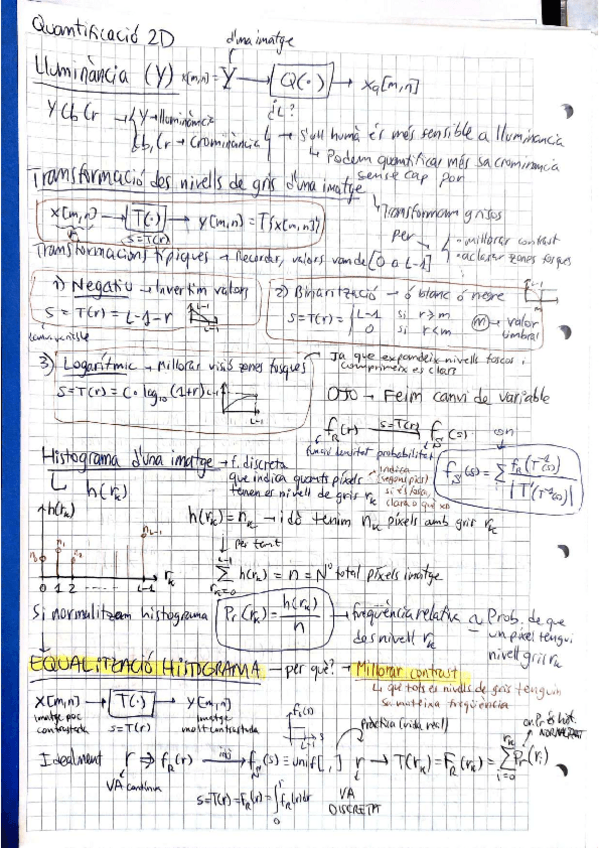 Quantificació 2D
d'una imatge
Lluminància (Y) x[m,n] = Y → Q(·) → xq[m,n]
¿L?
YCbCr → Y → lluminància
Cb, Cr → Crominància → S'ull humà és més sensible a lluminància
↳ Podem quantificar més sa crominància sense cap por
Transformació des nivells de gris d'una imatge
↳ Transformam grisos per
· millorar contrast
· aclarar zones fosques
x[m,n] → T(·) → y[m,n] = T{x[m,n]}
r s = T(r)
Transformacions típiques → Recordar, valors van de [0 a L-1]
1) Negatiu → Invertim valors
S = T(r) = L-1-r
L-1
L-1
2) Binarització → ó blanc ó negre
S = T(r) = { L-1 si r ≥ m
0 si r < m
m → valor llindar
3) Logarítmic → Millorar visió zones fosques
S = T(r) = C · log10 (1+r)
L-1
L-1
Ja que expandeix nivells foscos i comprimeix es clars
OJO → Feim canvi de variable
fR(r) s=T(r) → fS(s) on
funció densitat probabilitat
fS(s) = Σ fR(T⁻¹(s)) / |T'(T⁻¹(s))|
Histograma d'una imatge → f. discreta
que indica quants píxels
tenen es nivell de gris rk
↳ h(rk)
h(rk)
h(rk) = nk → i dó tenim nk píxels amb gris rk
↓ per tant
L-1
Σ h(rk) = n = Nº total píxels imatge
rk=0
n0 n1 n2 nL-1
0 1 2 ..... L-1 rk
Si normalitzam histograma
Pr(rk) = h(rk) / n → freqüència relativa des nivell rk ≃ Prob. de que un píxel tengui nivell gris rk
EQUALITZACIÓ HISTOGRAMA → per què? → Millorar contrast
↳ que tots es nivells de gris tenguin sa mateixa freqüència
x[m,n] → T(·) → y[m,n]
imatge poc contrastada s=T(r) imatge molt contrastada
fS(s)
L-1 s
pràctica (vida real)
Idealment r ⇒ fR(r) → fS(s) ≡ unif[ , ] r → T(rk) = FR(rk) = Σ Pr(ri)
rk
i=0
VA contínua
s = T(r) = FR(r) = ∫ fR(r)dr
0
VA DISCRETA